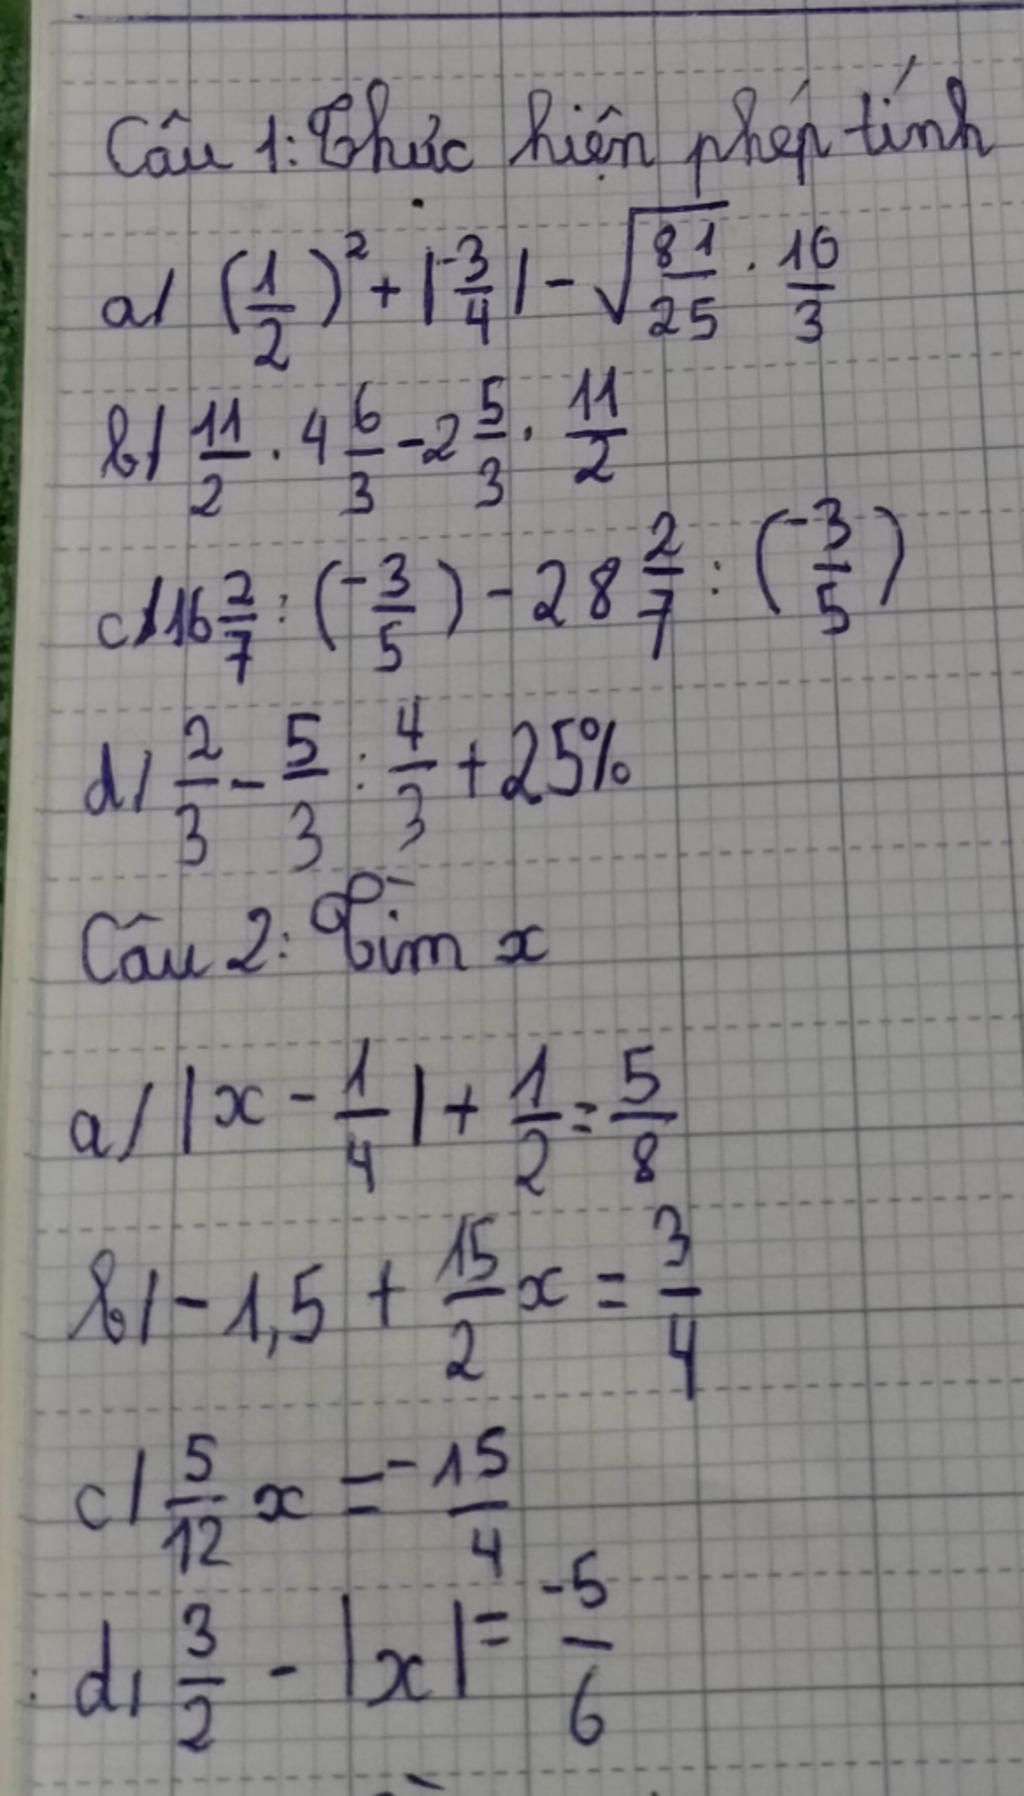 Câu 1: Thực hiện phép tính
a/ (1/2)² + |-3/4| - √(81/25) . 16/3
b/ 11/2 . 4 6/3 - 2 5/3 . 11/2
c/ 16 2/7 : (-3/5) - 28 2/7 : (-3/5)
d/ 2/3 - 5/3 : 4/3 + 25%
Câu 2: Tìm x
a/ |x - 1/4| + 1/2 = 5/8
b/ -1,5 + 15/2 x = 3/4
c/ 5/12 x = -15/4
d/ 3/2 - |x| = -5/6